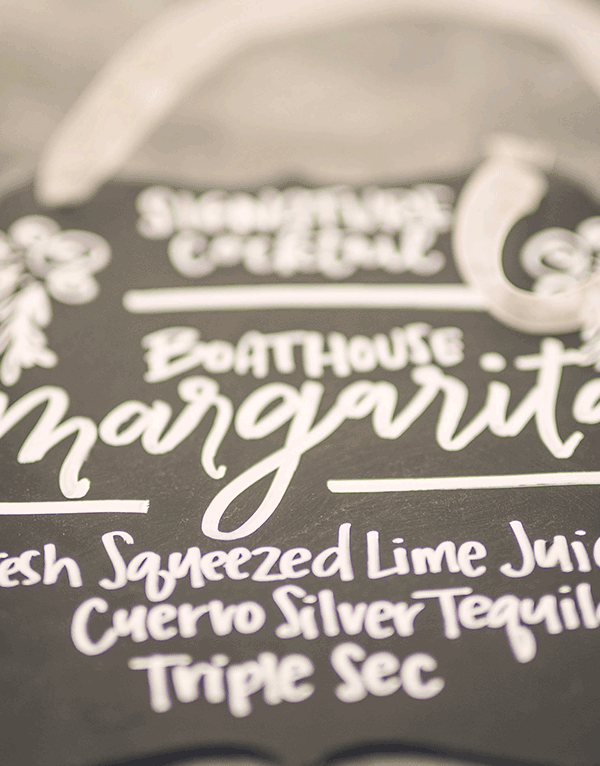 SIGNATURE
COCKTAIL
BOATHOUSE
margarita
esh Squeezed Lime Juic
Cuervo Silver Tequil
Triple Sec